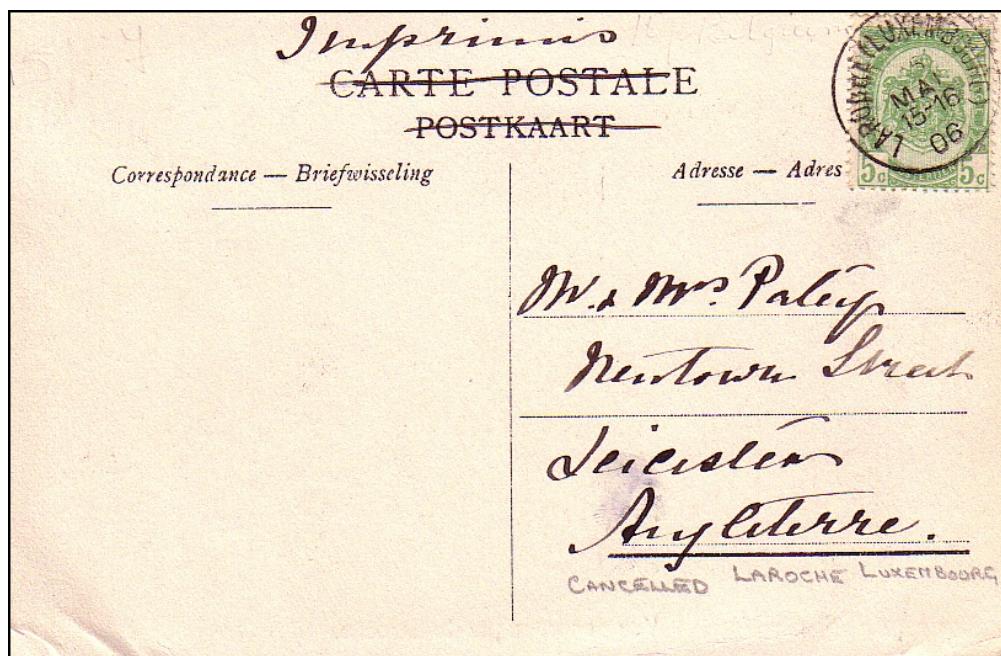 Imprimis
CARTE POSTALE
POSTKAART
Correspondance — Briefwisseling
Adresse — Adres
LAROCHE (LUXEMBOURG)
MAI
15-16
06
5c 5c
M. & Mrs. Pateys
Newtown Street
Leicester
Angleterre.
CANCELLED LAROCHE LUXEMBOURG